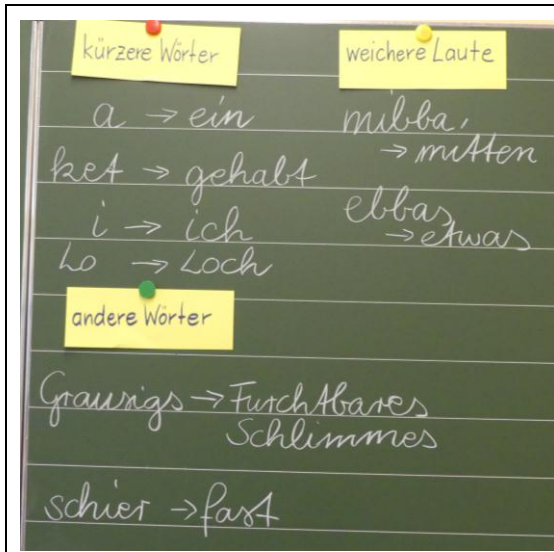 kürzere Wörter
a → ein
ket → gehabt
i → ich
Lo → Loch
weichere Laute
mibba,
→ mitten
ebbas
→ etwas
andere Wörter
Grausigs → Furchtbares
Schlimmes
schier → fast